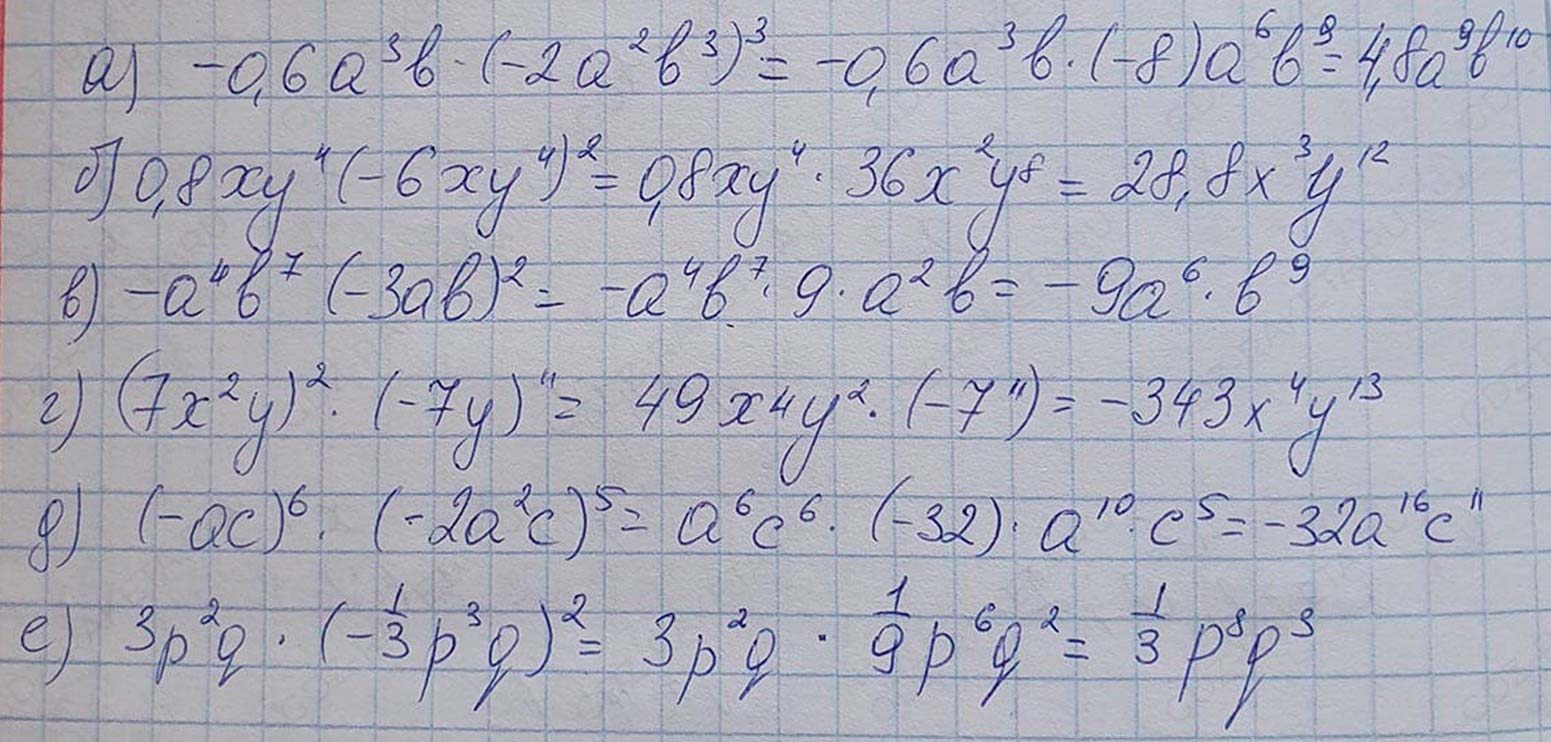 а) -0,6a³b·(-2a²b³)³=-0,6a³b·(-8)a⁶b⁹=4,8a⁹b¹⁰
б) 0,8xy⁴(-6xy⁴)²=0,8xy⁴·36x²y⁸=28,8x³y¹²
в) -a⁴b⁷(-3ab)²=-a⁴b⁷·9·a²b=-9a⁶·b⁹
г) (7x²y)²·(-7y)¹¹=49x⁴y²·(-7¹¹)=-343x⁴y¹³
д) (-ac)⁶·(-2a²c)⁵=a⁶c⁶·(-32)·a¹⁰·c⁵=-32a¹⁶c¹¹
е) 3p²q·(-1/3p³q)²=3p²q·1/9p⁶q²=1/3p⁸q³